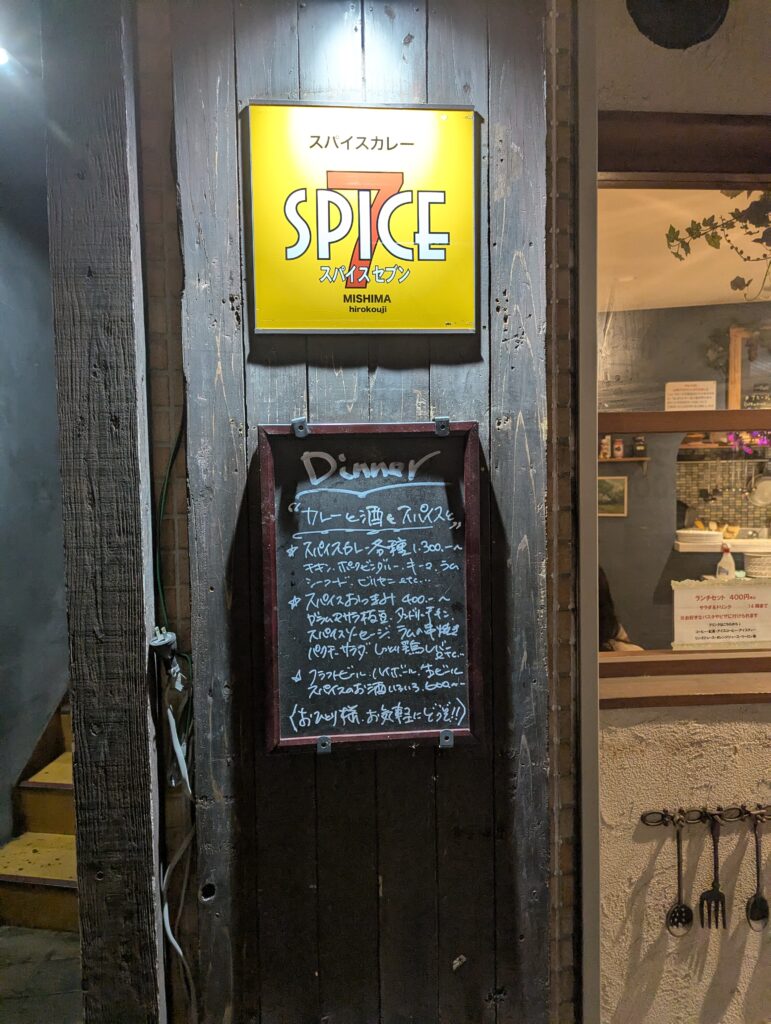 スパイスカレー
7
SPICE
スパイスセブン
MISHIMA
hirokouji
Dinner
"カレーと酒とスパイスと"
★スパイスカレー各種 1,300.-~
チキン、ポークビンダルー、キーマ、ラム
シーフード、ビリヤニetc...
★スパイスおつまみ 400.-~
ガラムマサラ枝豆・タンドリーチキン
スパイスソーセージ ラムの串焼き
パクチーサラダ しっとり鶏レバー
etc...
クラフトビール、ハイボール、生ビール
スパイスのお酒いろいろ 600-~
(おひとり様、お気軽にどうぞ!!)
ランチセット 400円
サラダ&ドリンク
14時まで
※お好きなパスタやピザに付けられます